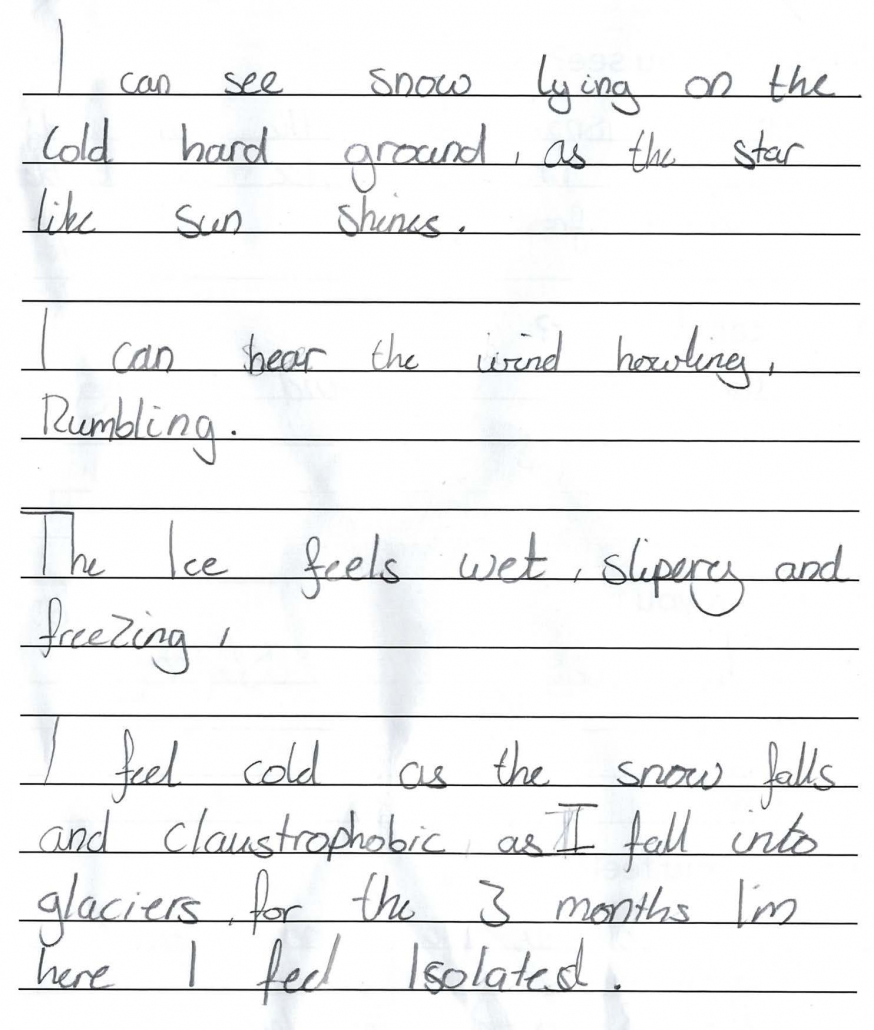 I can see snow lying on the
cold hard ground, as the star
like sun shines.
I can hear the wind howling,
Rumbling.
The Ice feels wet, slipercy and
freezing,
I feel cold as the snow falls
and claustrophobic as I fall into
glaciers, for the 3 months I'm
here I feel Isolated.